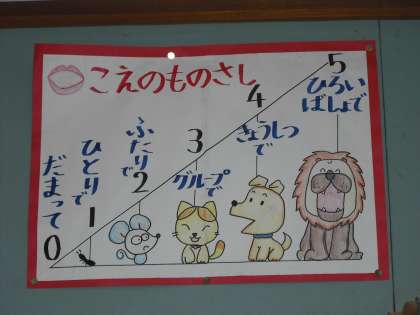 こえのものさし
0
だまって
1
ひとりで
2
ふたりで
3
グループで
4
きょうしつ
で
5
ひろい
ばしょで